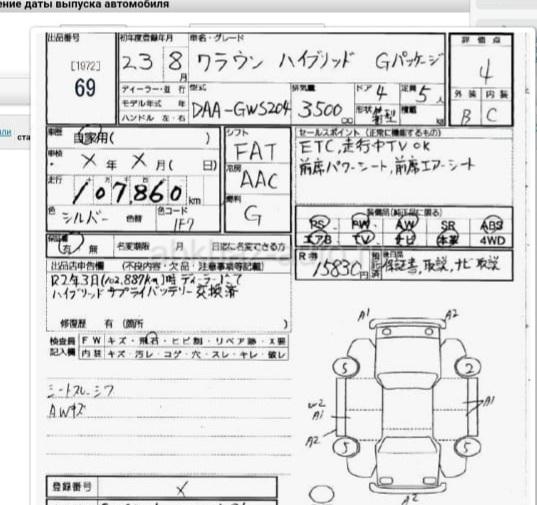 ение даты выпуска автомобиля
出品番号
[1972]
69
初年度登録年月
23 8月
車名・グレード
クラウン ハイブリッド Gパッケージ
評価点
4
外装 内装
B C
ディーラー・並行
モデル年式 年
ハンドル 左・右
型式
DAA-GWS204
排気量
3500
ドア 4
形状
定員 5人
積載
車歴 自家用( )
車検 X年 X月( 日)
走行 107,860 km
色 シルバー 色替 色コード 1F7
シフト
FAT
冷房
AAC
燃料
G
セールスポイント (正常に機能するもの)
ETC,走行中TV OK
前席パワーシート,前席エアーシート
装備品(純正品に限る)
PS PW AW SR ABS
エアB TV ナビ 本革 4WD
保証書 有 無 名変期限 月 日迄に名変できる方
R券 15830円
保証書,取説,ナビ取説
出品店申告欄 (不良内容・欠品・注意事項等記載)
R2年3月(102,887km)時 ディーラーにて
ハイブリッド サプライバッテリー 交換済
修復歴 有 (箇所 )
検査員記入欄
FW キズ・飛石・ヒビ割・リペア跡・X要
内装 キズ・汚レ・コゲ・穴・スレ・キレ・破レ
シートスレ・シワ
AWキズ
A1 A2
5 2
W2
A1 A1
A2
5 5
A2
登録番号 X